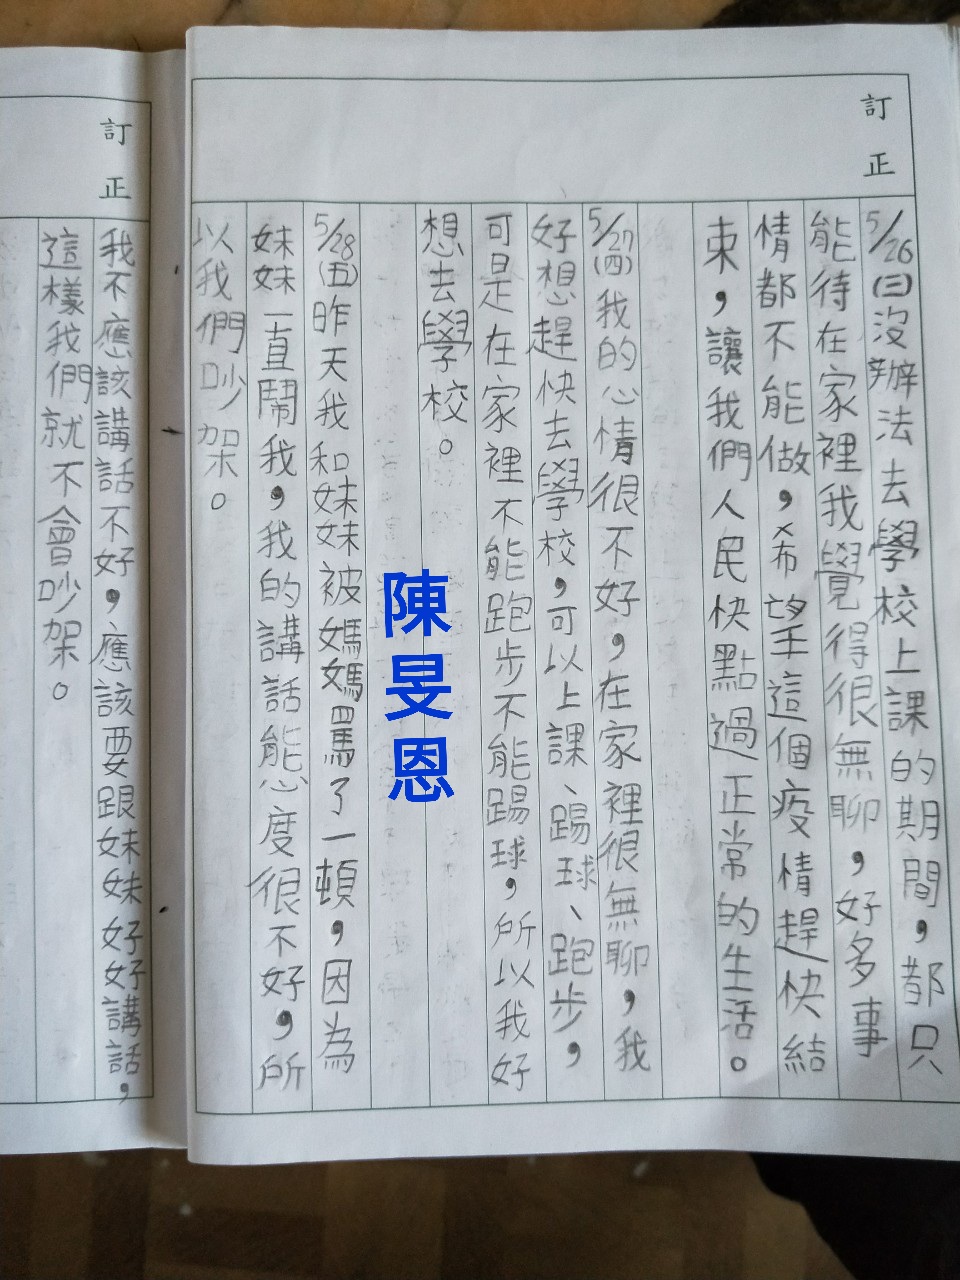 訂正
5/26(三)沒辦法去學校上課的期間，都只
能待在家裡我覺得很無聊，好多事
情都不能做，希望這個疫情趕快結
束，讓我們人民快點過正常的生活。
5/27(四)我的心情很不好，在家裡很無聊，我
好想趕快去學校，可以上課、踢球、跑步，
可是在家裡不能跑步不能踢球，所以我好
想去學校。
5/28(五)昨天我和妹妹被媽媽罵了一頓，因為
妹妹一直鬧我，我的講話能心度很不好，所
以我們吵架。
陳旻恩
訂正
我不應該講話不好，應該要跟妹妹好好講話，
這樣我們就不會吵架。